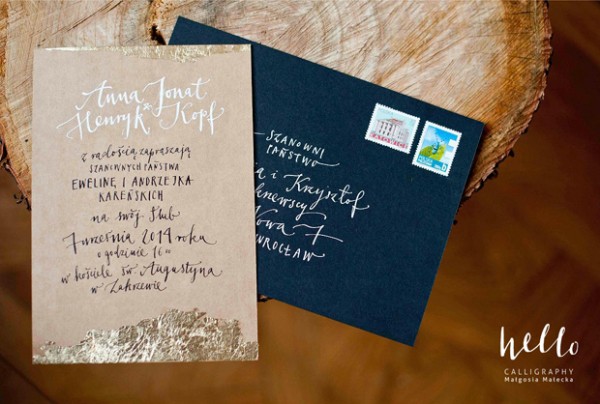 Anna Jonat
Henryk Kopf
z radością zapraszają
SZANOWNYCH PAŃSTWA
EWELINĘ I ANDRZEJKA
KAREŃSKICH
na swój Ślub
7 września 2014 roku
o godzinie 16
w kościele św. Augustyna
w Zakrzewie
SZANOWNI
PAŃSTWO
i Krzysztof
7
WROCŁAW
hello
CALLIGRAPHY
Małgosia Małecka